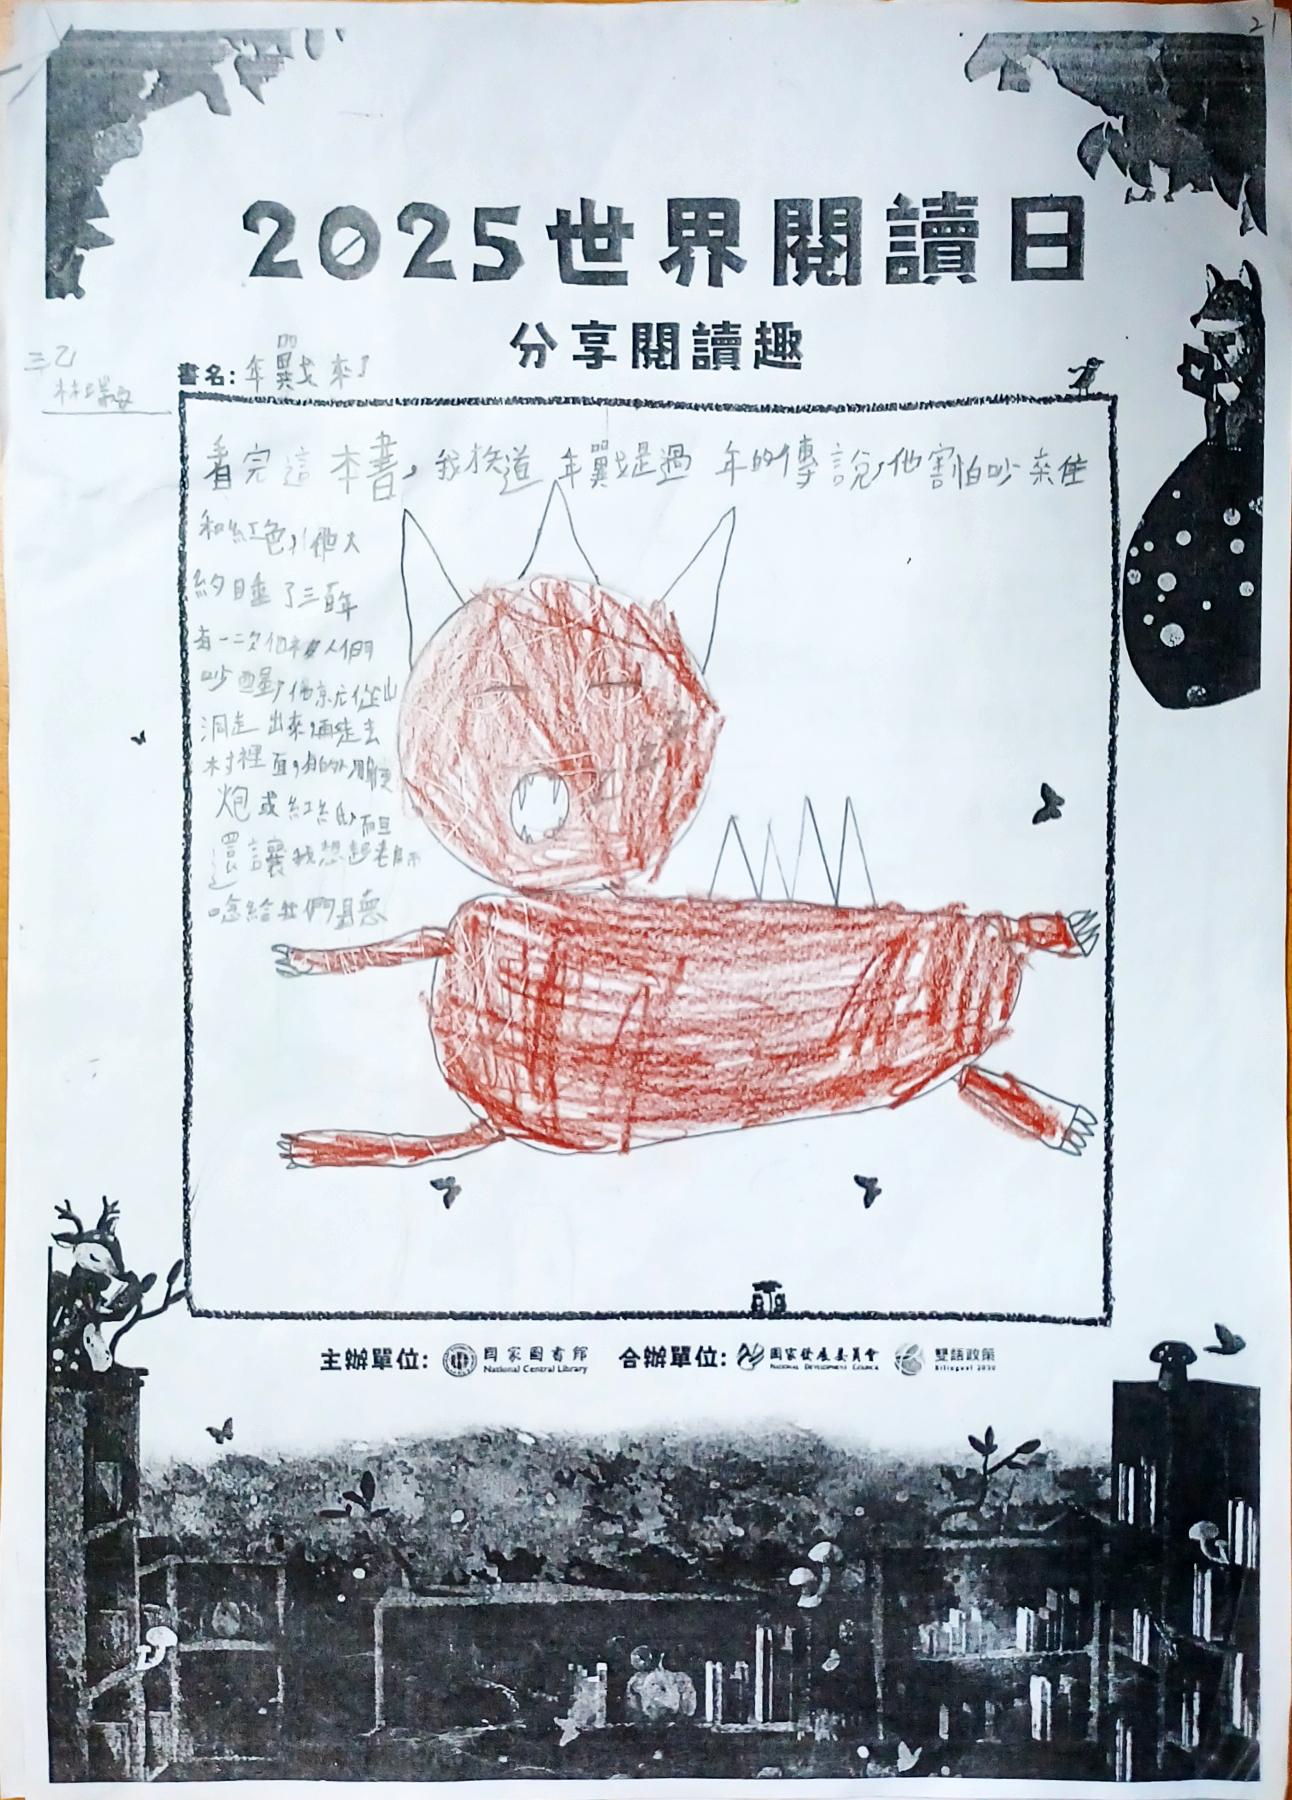 21
2025世界閱讀日
分享閱讀趣
三乙
林瑞安
書名：年獸來了
看完這本書，我知道年獸是過年的傳說，他害怕吵雜
和紅色，他大
約睡了三百年
有一次他被人們
吵醒，他就從山
洞走出來，走去
村裡面，
炮或紅紙，而且
還讓我想起老師
唸給我們聽
主辦單位： 國家圖書館 National Central Library 合辦單位： 國家發展委員會 National Development Council 雙語政策 Bilingual 2030